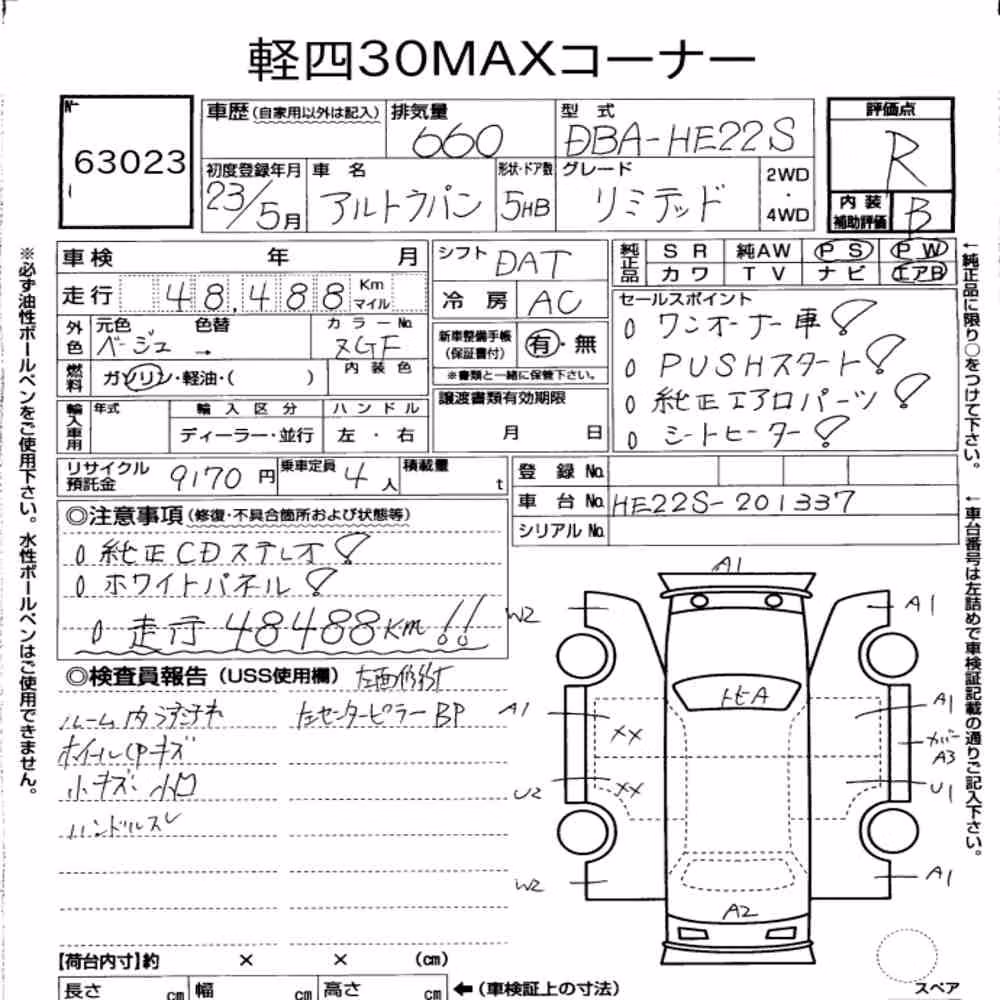 軽四30MAXコーナー
No
63023
車歴(自家用以外は記入)
排気量
660
型 式
DBA-HE22S
評価点
R
初度登録年月
23/5月
車 名
アルトラパン
形状・ドア数
5HB
グレード
リミテッド
2WD
・
4WD
内 装
補助評価
B
車検 年 月
シフト
DAT
純正品
S R 純AW P S P W
カワ T V ナビ エアB
走行 48,488 Km
マイル
冷 房 AC
セールスポイント
0 ワンオーナー車!
0 PUSHスタート!
0 純正エアロパーツ!
0 シートヒーター!
外色
元色 色替
ベージュ →
カラーNo.
ZGF
新車整備手帳
(保証書付)
有・無
※書類と一緒に保管下さい。
燃料
ガソリン・軽油・( )
内 装 色
譲渡書類有効期限
月 日
輸入車用
年式
輸 入 区 分
ハ ン ド ル
ディーラー・並行
左 ・ 右
リサイクル
預託金
9170 円
乗車定員
4 人
積載量
t
登 録 No.
車 台 No. HE22S-201337
シリアル No.
◎注意事項(修復・不具合箇所および状態等)
0 純正CDステレオ!
0 ホワイトパネル!
0 走行 48488km!!
◎検査員報告(USS使用欄)
ルーム内
左センターピラー BP
小キズ 小凹
ハンドルスレ
A1
W2
A1
トビA
A1
XX
A1
A3
XX
U2
U1
W2
A1
A2
【荷台内寸】約 × × (cm)
長さ cm 幅 cm 高さ cm
←(車検証上の寸法)
スペア
※必ず油性ボールペンをご使用下さい。水性ボールペンはご使用できません。
←純正品に限り○をつけて下さい。
←車台番号は左詰めで車検証記載の通りご記入下さい。